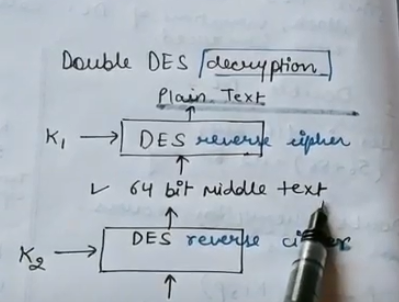 Double DES decryption
Plain Text
K1 → DES reverse cipher
✓ 64 bit middle text
K2 → DES reverse cipher